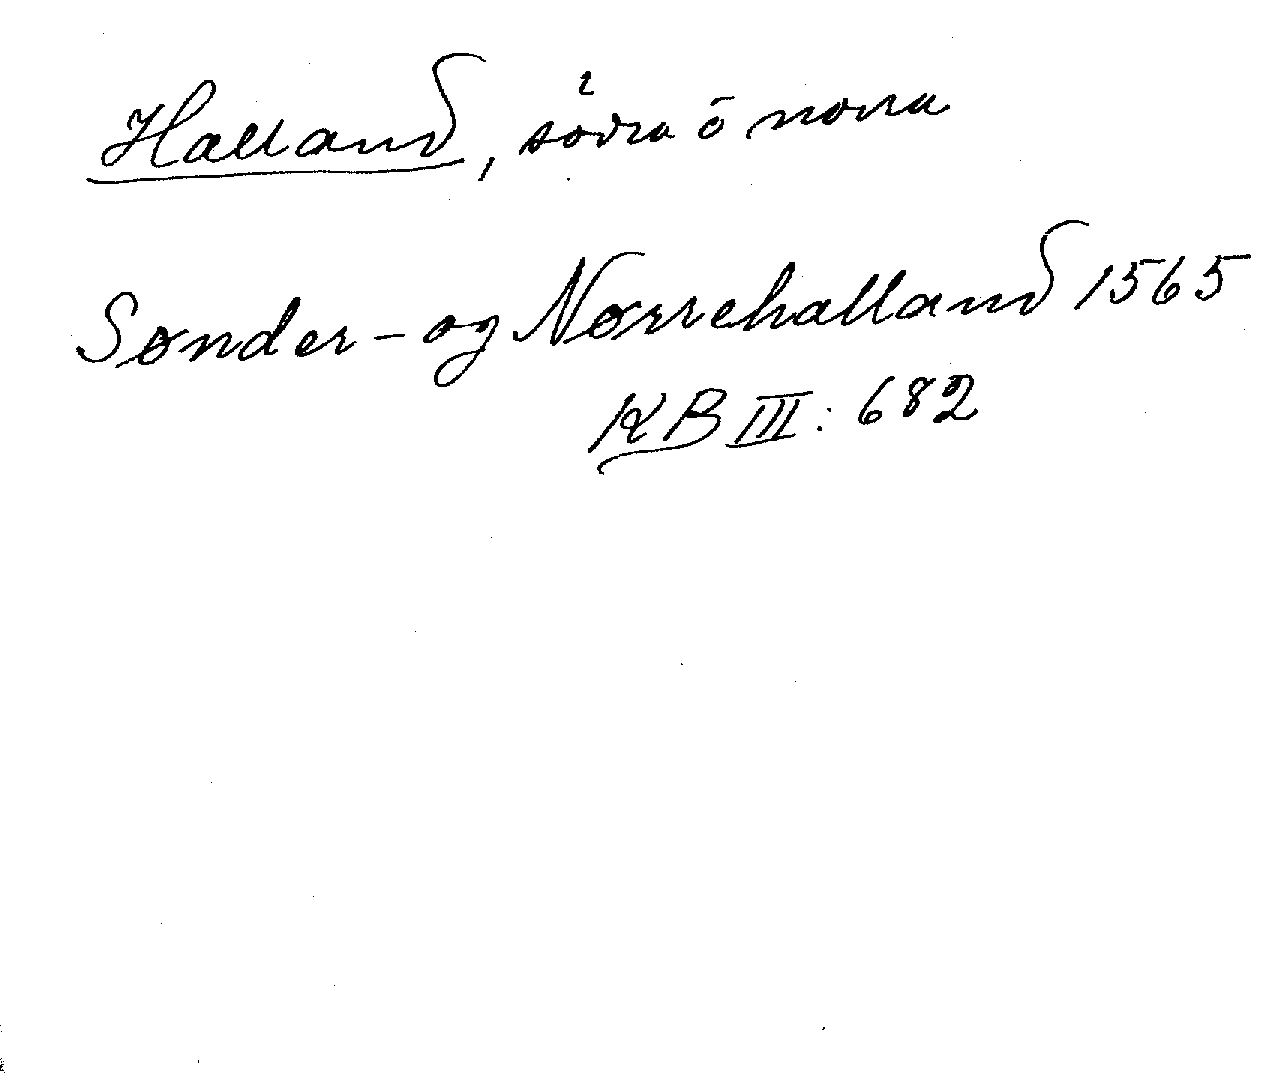 Halland, södra ō norra
Sønder- og Nørrehalland 1565
KB III: 682